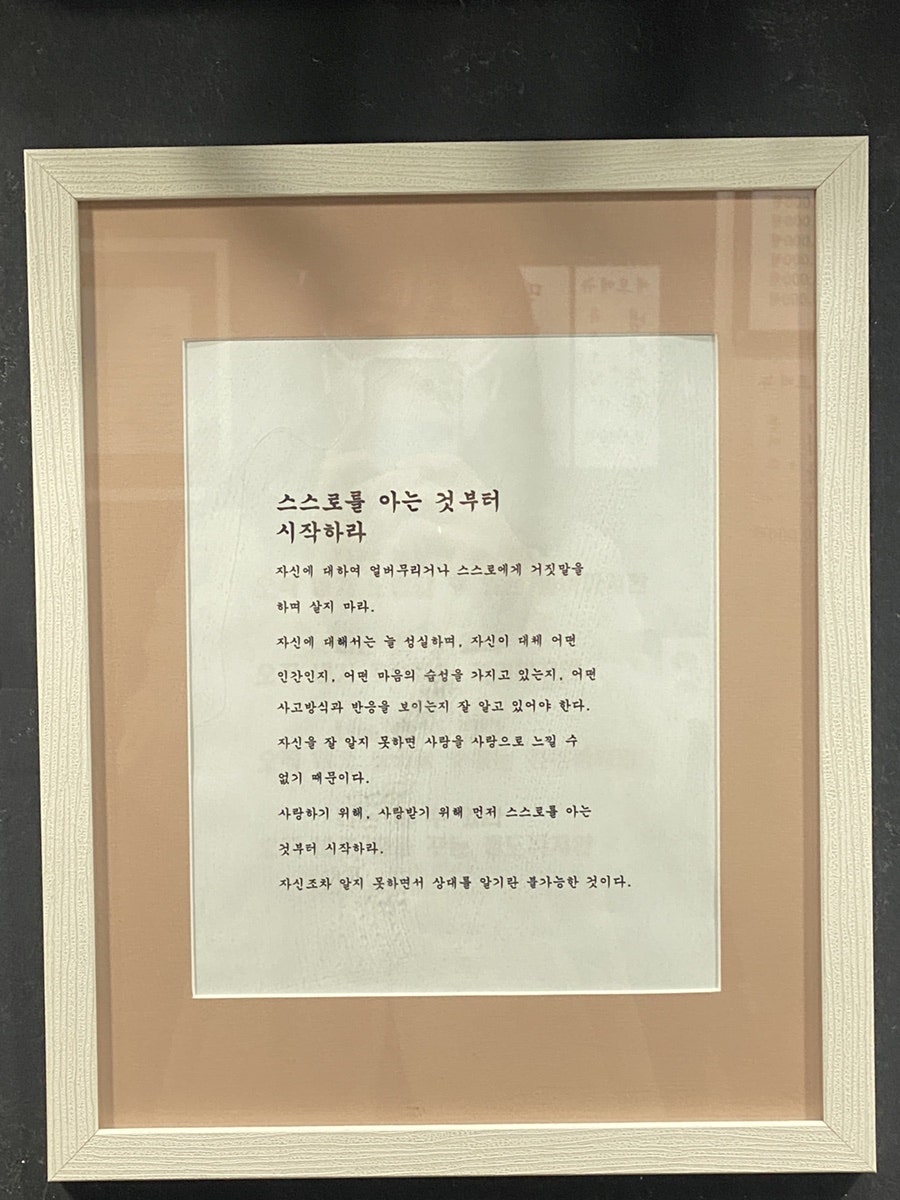 스스로를 아는 것부터
시작하라
자신에 대하여 얼버무리거나 스스로에게 거짓말을
하며 살지 마라.
자신에 대해서는 늘 성실하며, 자신이 대체 어떤
인간인지, 어떤 마음의 습성을 가지고 있는지, 어떤
사고방식과 반응을 보이는지 잘 알고 있어야 한다.
자신을 잘 알지 못하면 사랑을 사랑으로 느낄 수
없기 때문이다.
사랑하기 위해, 사랑받기 위해 먼저 스스로를 아는
것부터 시작하라.
자신조차 알지 못하면서 상대를 알기란 불가능한 것이다.